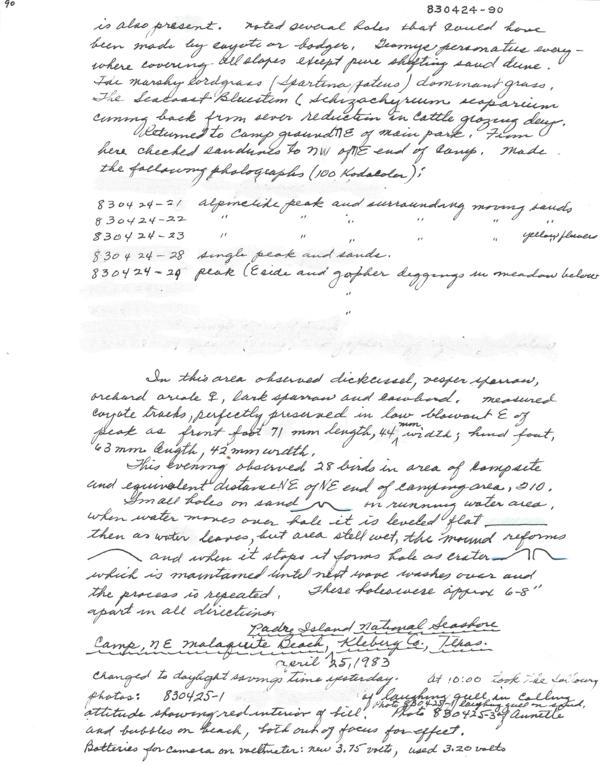 90
830424-90
is also present. Noted several holes that could have
been made by coyote or badger. Geomys personatus every-
where covering all slopes except pure shifting sand dune.
The marshy cordgrass (Spartina patens) dominant grass.
The Seacoast Bluestem (Schizachyrium scoparium
coming back from sever reduction in cattle grazing days.
Returned to camp ground NE of main park. From
here checked sandunes to NW of NE end of camp. Made
the following photographs (100 Kodacolor):
830424-21 alpinelike peak and surrounding moving sands
830424-22 " " " " "
830424-23 " " " " " yellow flowers
830424-28 single peak and sands.
830424-29 peak (E side and gopher diggings in meadow below
"
"
In this area observed dickcissel, vesper sparrow,
orchard oriole ♀, lark sparrow and cowbird. Measured
coyote tracks, perfectly preserved in low blowout E of
peak as front foot 71 mm length, 44 mm width; hind foot,
63 mm length, 42 mm width.
This evening observed 28 birds in area of campsite
and equivalent distance NE of NE end of camping area, 210.
Small holes on sand in running water area,
when water moves over hole it is leveled flat
then as water leaves, but area still wet, the mound reforms
and when it stops it forms hole as crater
which is maintained until next wave washes over and
the process is repeated. These holes were approx 6-8"
apart in all directions.
Padre Island National Seashore
Camp, NE Malaquite Beach, Kleberg Co., Texas.
April 25, 1983
Changed to daylight savings time yesterday. At 10:00 took the following
photos: 830425-1 of laughing gull in calling
Photo 830425-1 laughing gull on sand.
attitude showing red interior of bill. Photo 830425-3 of Annette
and bubbles on beach, both out of focus for effect.
Batteries for camera on voltmeter: new 3.75 volts, used 3.20 volts